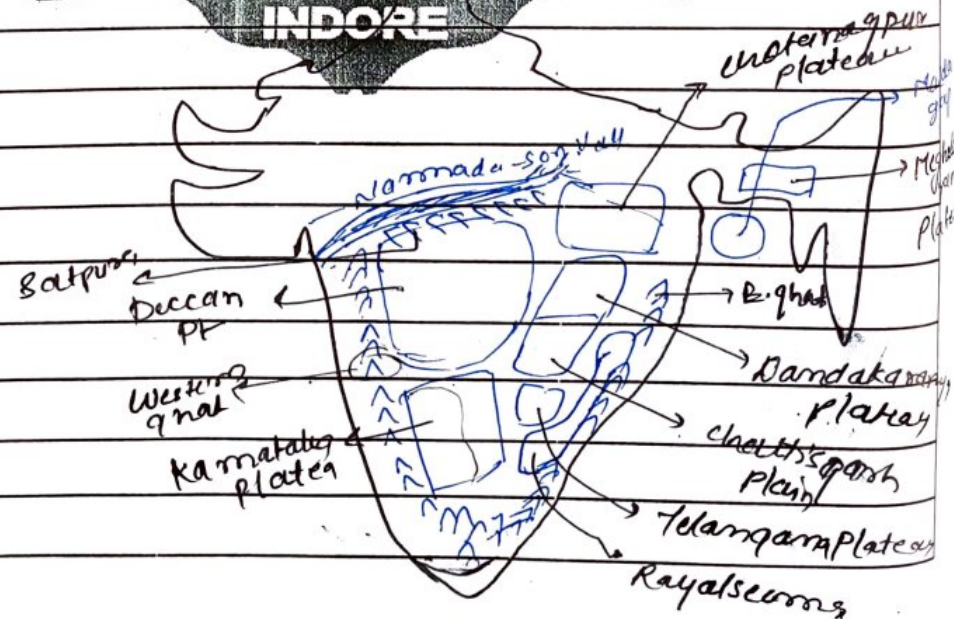 INDORE
Chotanagpur
Plateau
Narmada-son Vall
Satpura
Deccan
Pt
E.ghat
Western
ghat
Dandakaranya
Plateau
Karnataka
Platea
Chattisgarh
Plain
Telangana Plateau
Rayalseema